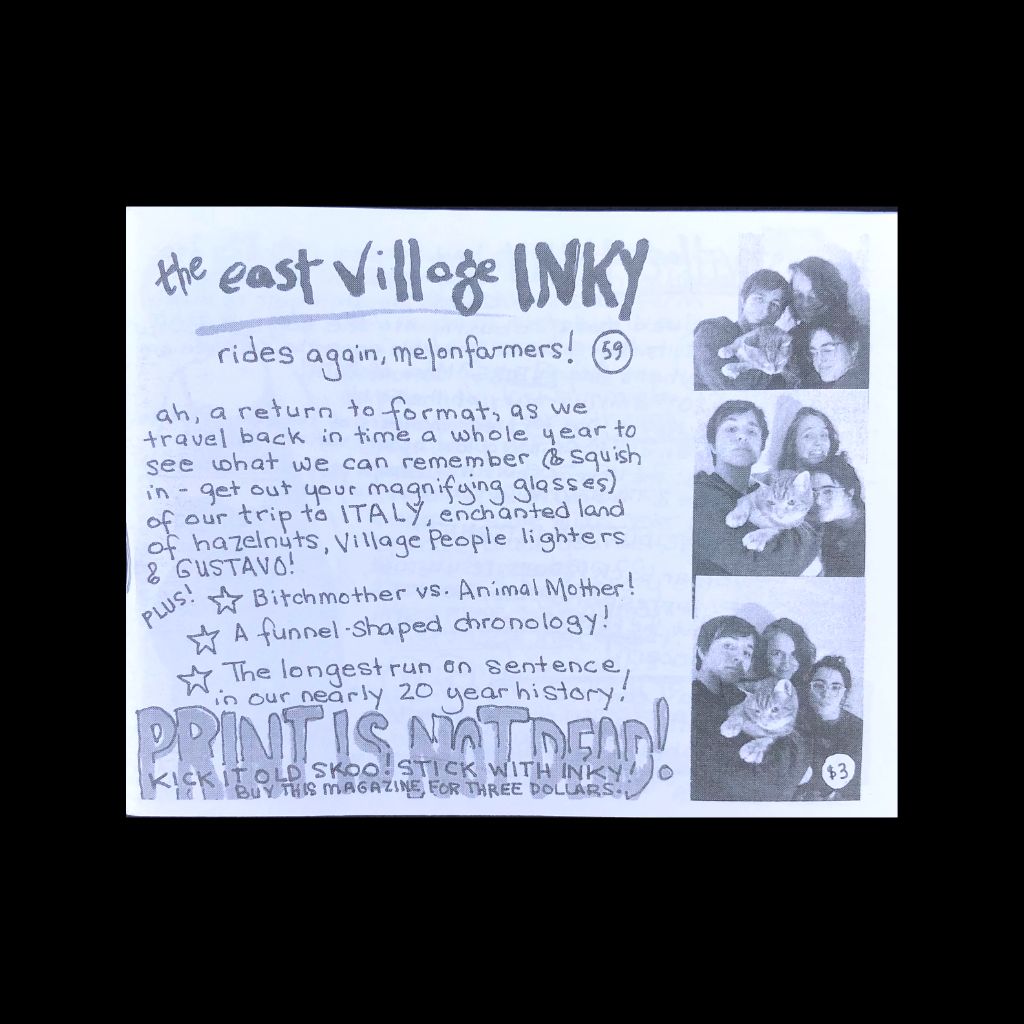 the east village INKY
rides again, melonfarmers! 59
ah, a return to format, as we
travel back in time a whole year to
see what we can remember (& squish
in - get out your magnifying glasses)
of our trip to ITALY, enchanted land
of hazelnuts, Village People lighters
& GUSTAVO!
PLUS! ☆ Bitchmother vs. Animal Mother!
☆ A funnel-shaped chronology!
☆ The longest run on sentence,
in our nearly 20 year history!
PRINT IS NOT DEAD!
KICK IT OLD SKOO! STICK WITH INKY!
BUY THIS MAGAZINE, FOR THREE DOLLARS.
$3